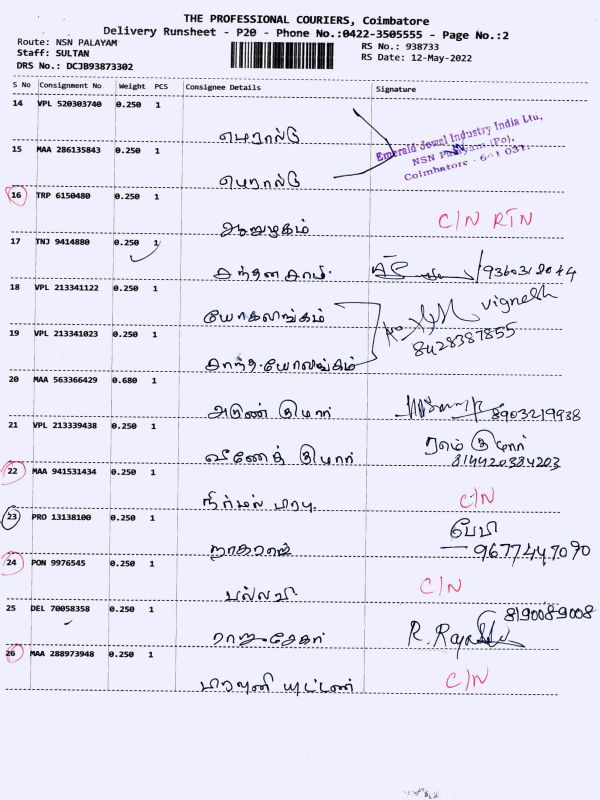 THE PROFESSIONAL COURIERS, Coimbatore
Delivery Runsheet - P20 - Phone No.:0422-3505555 - Page No.:2
Route: NSN PALAYAM
RS No.: 938733
Staff: SULTAN
RS Date: 12-May-2022
DRS No.: DCJB93873302
S No Consignment No Weight PCS Consignee Details Signature
14 VPL 520303740 0.250 1
எமரால்டு
Emerald Jewel Industry India Ltd,
NSN Palayam (Po),
Coimbatore - 641 031.
15 MAA 286135843 0.250 1
எமரால்டு
16 TRP 6150480 0.250 1
ஆறுமுகம் C/N RTN
17 TNJ 9414880 0.250 1
18 VPL 213341122 0.250 1
யோகலிங்கம் Vignesh
8428387855
19 VPL 213341023 0.250 1
20 MAA 563366429 0.680 1
அருண் குமார் 8903219938
21 VPL 213339438 0.250 1
ராம் குமார்
வினோத் குமார் 814420384203
22 MAA 941531434 0.250 1
நிர்மல் பிரபு C/N
23 PRO 13138100 0.250 1
பேபி
நாகராஜ் 9677447090
24 PON 9976545 0.250 1
பல்லவி C/N
25 DEL 70058358 0.250 1
8190089008
ராஜசேகர்
26 MAA 288973948 0.250 1
C/N